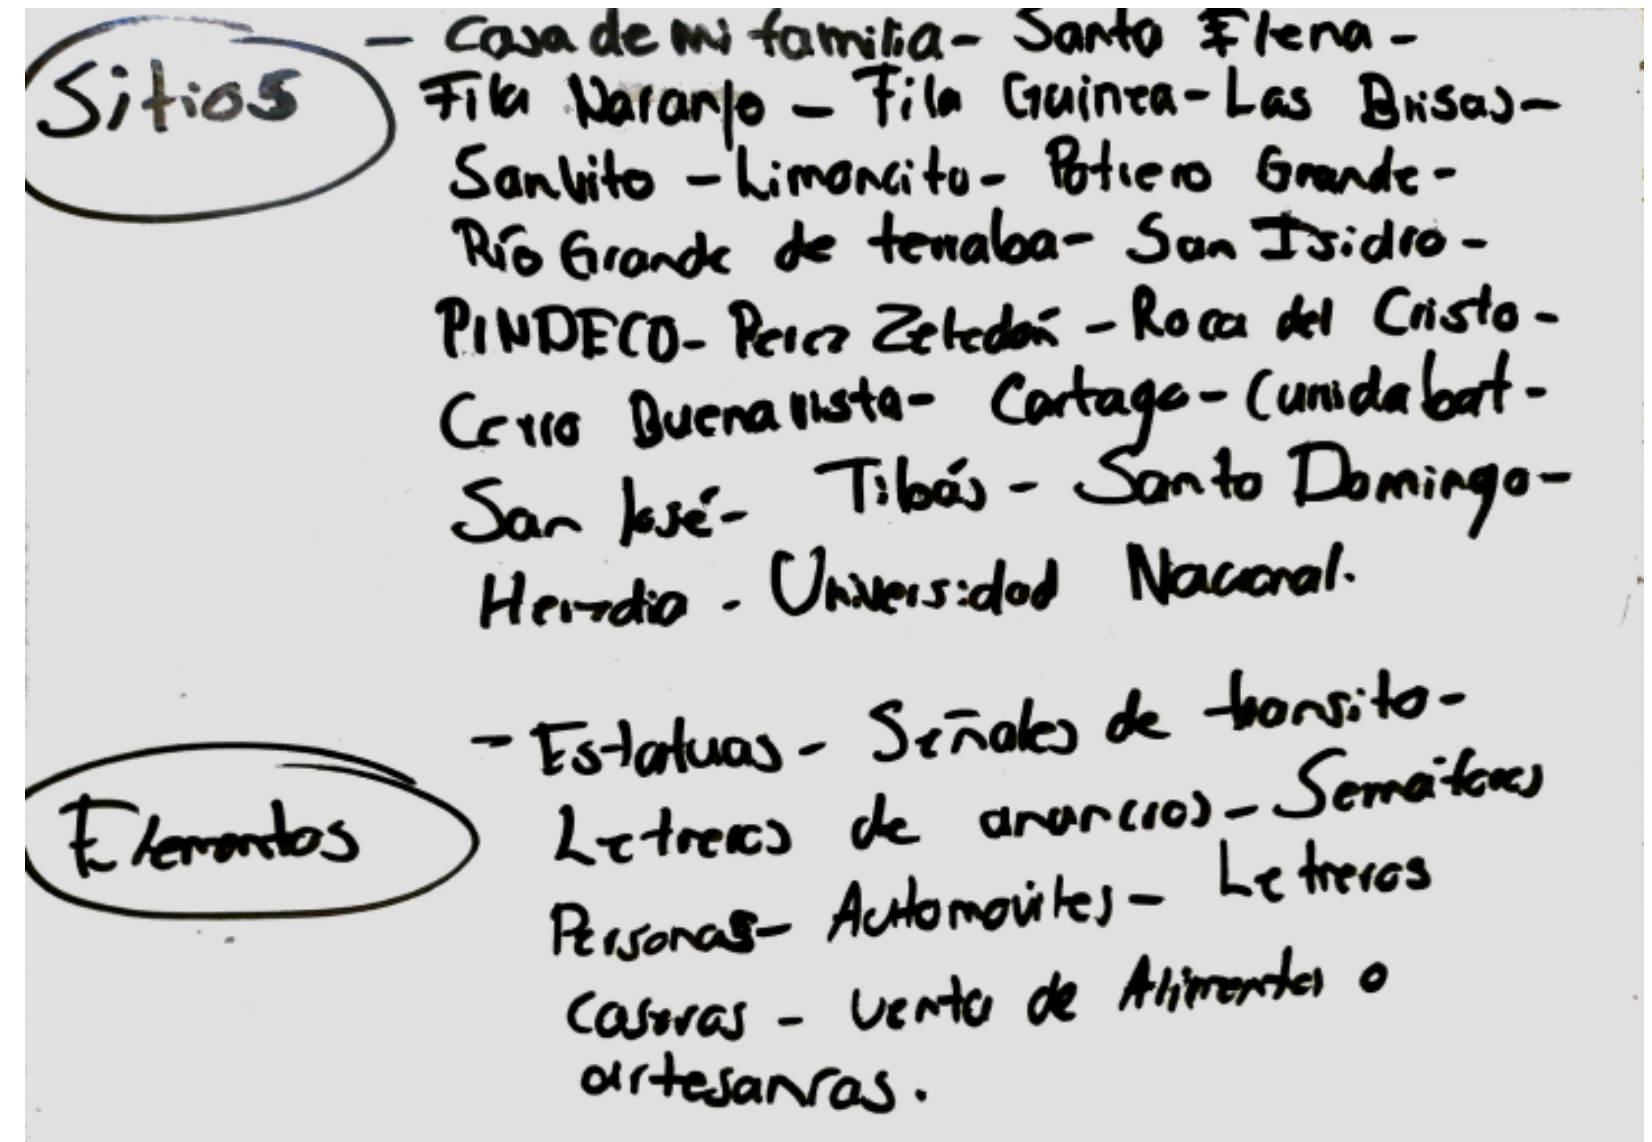 Sitios
- Casa de mi familia - Santa Elena -
Fila Naranjo - Fila Guinea - Las Brisas -
San Vito - Limoncito - Potrero Grande -
Río Grande de terraba - San Isidro -
PINDECO - Perez Zeledón - Roca del Cristo -
Cerro Buena vista - Cartago - Curridabat -
San José - Tibás - Santo Domingo -
Heredia - Universidad Nacional.
Elementos
- Estatuas - Señales de transito -
Letreros de anuncios - Semáforos
Personas - Automoviles - Letreros
Caseras - venta de Alimentos o
artesanías.